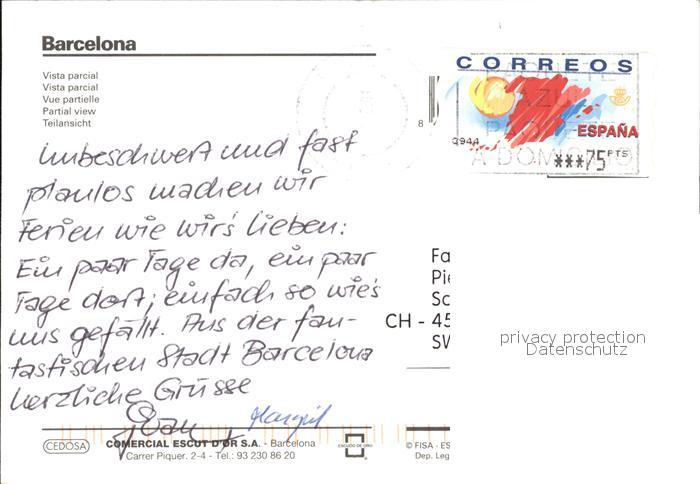 Barcelona
Vista parcial
Vista parcial
Vue partielle
Partial view
Teilansicht
CORREOS
ESPAÑA
***75 PTS
8
A DOMICILIO
Unbeschwert und fast
planlos machen wir
Ferien wie wir's lieben:
Ein paar Tage da, ein paar
Tage dort; einfach so wie's
uns gefällt. Aus der fan-
tastischen Stadt Barcelona
herzliche Grüsse
Margrit
Fa
Pie
Sc
CH - 45
SW
privacy protection
Datenschutz
CEDOSA
COMERCIAL ESCUT D'OR S.A. - Barcelona
Carrer Piquer. 2-4 - Tel.: 93 230 86 20
ESCUDO DE ORO
© FISA - ES
Dep. Leg